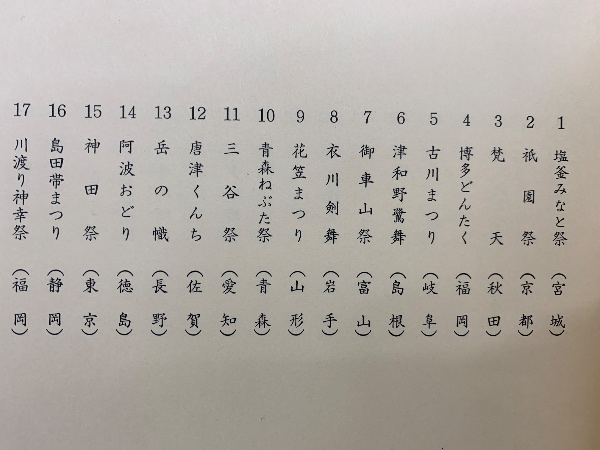 1 塩釜みなと祭(宮城)
2 祇園祭(京都)
3 梵天(秋田)
4 博多どんたく(福岡)
5 古川まつり(岐阜)
6 津和野鷺舞(島根)
7 御車山祭(富山)
8 衣川剣舞(岩手)
9 花笠まつり(山形)
10 青森ねぶた祭(青森)
11 三谷祭(愛知)
12 唐津くんち(佐賀)
13 岳の幟(長野)
14 阿波おどり(徳島)
15 神田祭(東京)
16 島田帯まつり(静岡)
17 川渡り神幸祭(福岡)